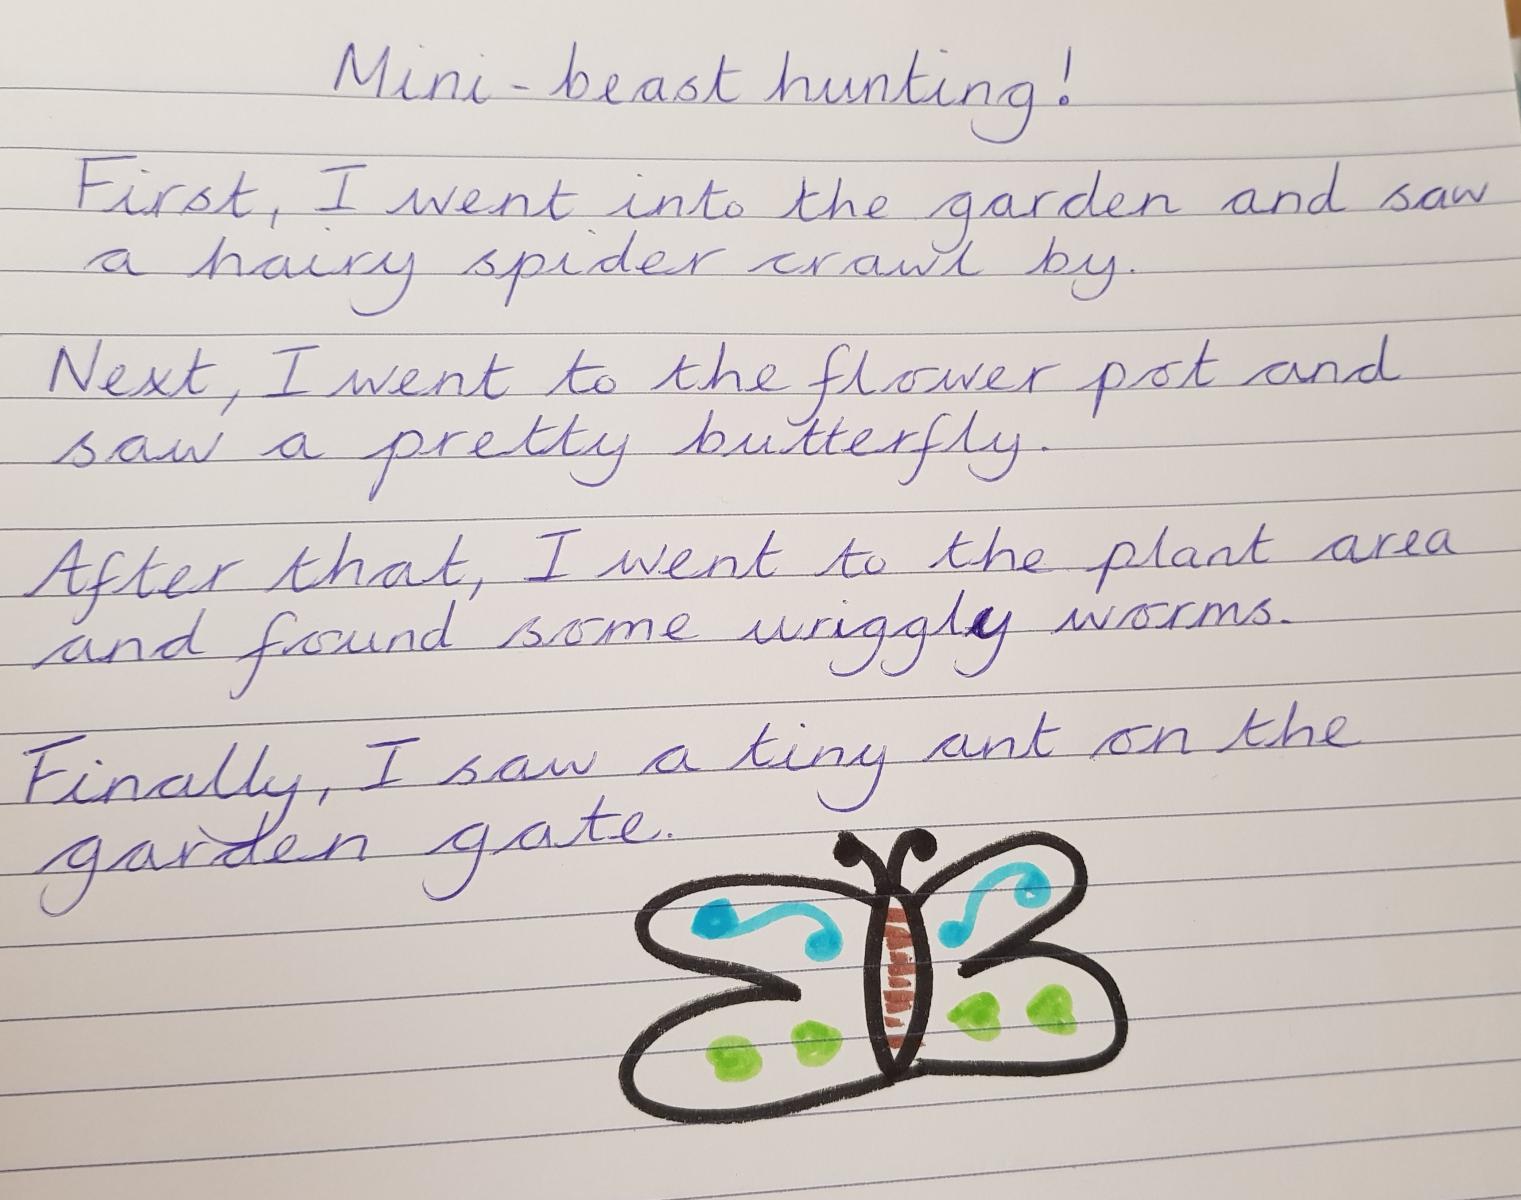 Mini-beast hunting!
First, I went into the garden and saw
a hairy spider crawl by.
Next, I went to the flower pot and
saw a pretty butterfly.
After that, I went to the plant area
and found some wriggly worms.
Finally, I saw a tiny ant on the
garden gate.